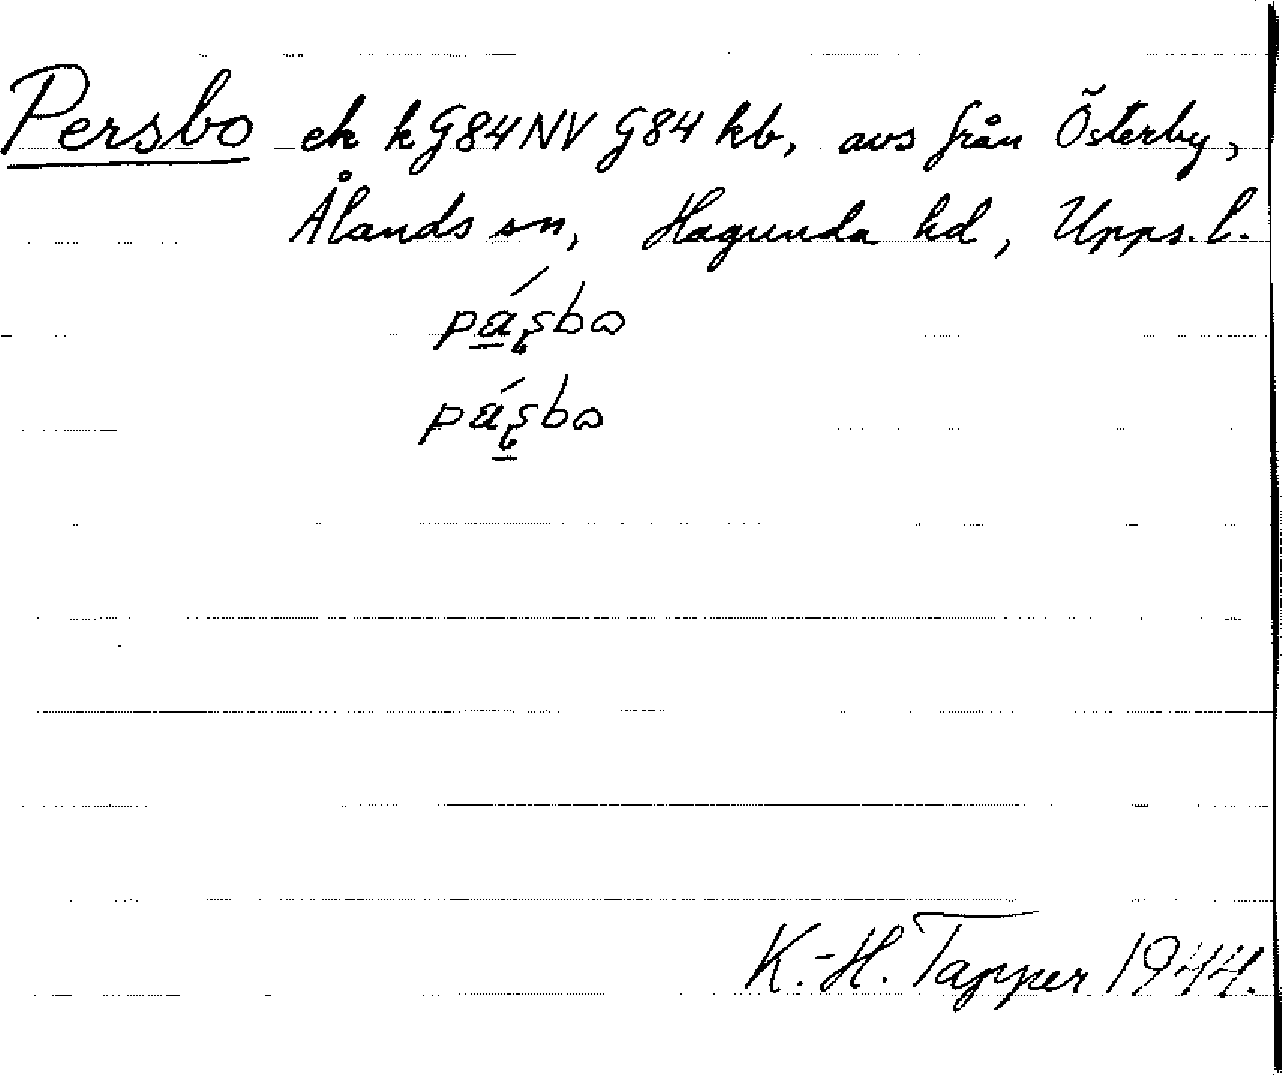 Persbo ek k G84NV G84 kb, avs från Österby,
Ålands sn, Hagunda hd, Upps. l.
K.-H. Tapper 1944.